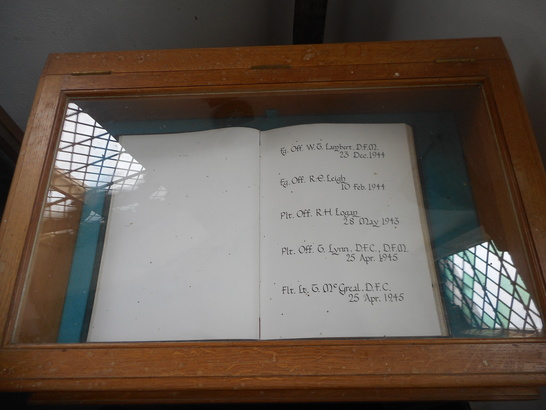 Fg. Off. W.G. Lambert. D.F.M.
23 Dec. 1944
Fg. Off. R.E. Leigh
10 Feb. 1944
Plt. Off. R.H. Logan
28 May 1943
Plt. Off. G. Lynn. D.F.C., D.F.M.
25 Apr. 1945
Flt. Lt. G. McGreal. D.F.C.
25 Apr. 1945